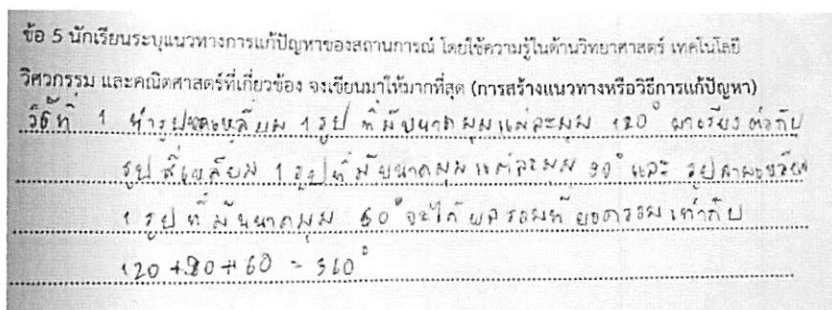 ข้อ 5 นักเรียนระบุแนวทางการแก้ปัญหาของสถานการณ์ โดยใช้ความรู้ในด้านวิทยาศาสตร์ เทคโนโลยี
วิศวกรรม และคณิตศาสตร์ที่เกี่ยวข้อง จงเขียนมาให้มากที่สุด (การสร้างแนวทางหรือวิธีการแก้ปัญหา)
วิธีที่ 1 นำรูปหกเหลี่ยม 1 รูป ที่มีขนาดมุมแต่ละมุม 120° มาเรียงต่อกับ
รูปสี่เหลี่ยม 1 รูปที่มีขนาดมุมแต่ละมุม 90° และ รูปสามเหลี่ยม
1 รูปที่มีขนาดมุม 60° จะได้ผลรวมที่จุดรวมเท่ากับ
120 + 90 + 60 = 360°